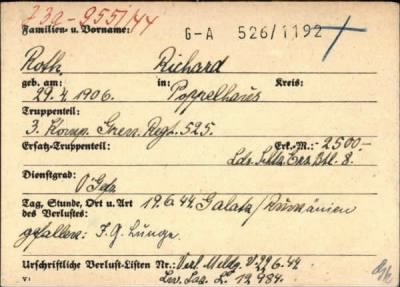 73a-955/44
Familien- u. Vorname: G-A 526/1192
Roth, Richard
geb. am: in: Kreis:
29.4.1906. Poppelhaus
Truppenteil:
3. Komp. Gren. Regt. 525.
Ersatz-Truppenteil: Erk.-M.: 2500-
Lds. Schtz. Ers. Btl. 8.
Dienstgrad:
OGefr.
Tag, Stunde, Ort u. Art 19.6.44. Galata/Rumänien
des Verlustes:
gefallen: I.G. Lunge.
Urschriftliche Verlust-Listen Nr.: Verl. Meldg. v. 22.6.44
L. 12 984.
V1